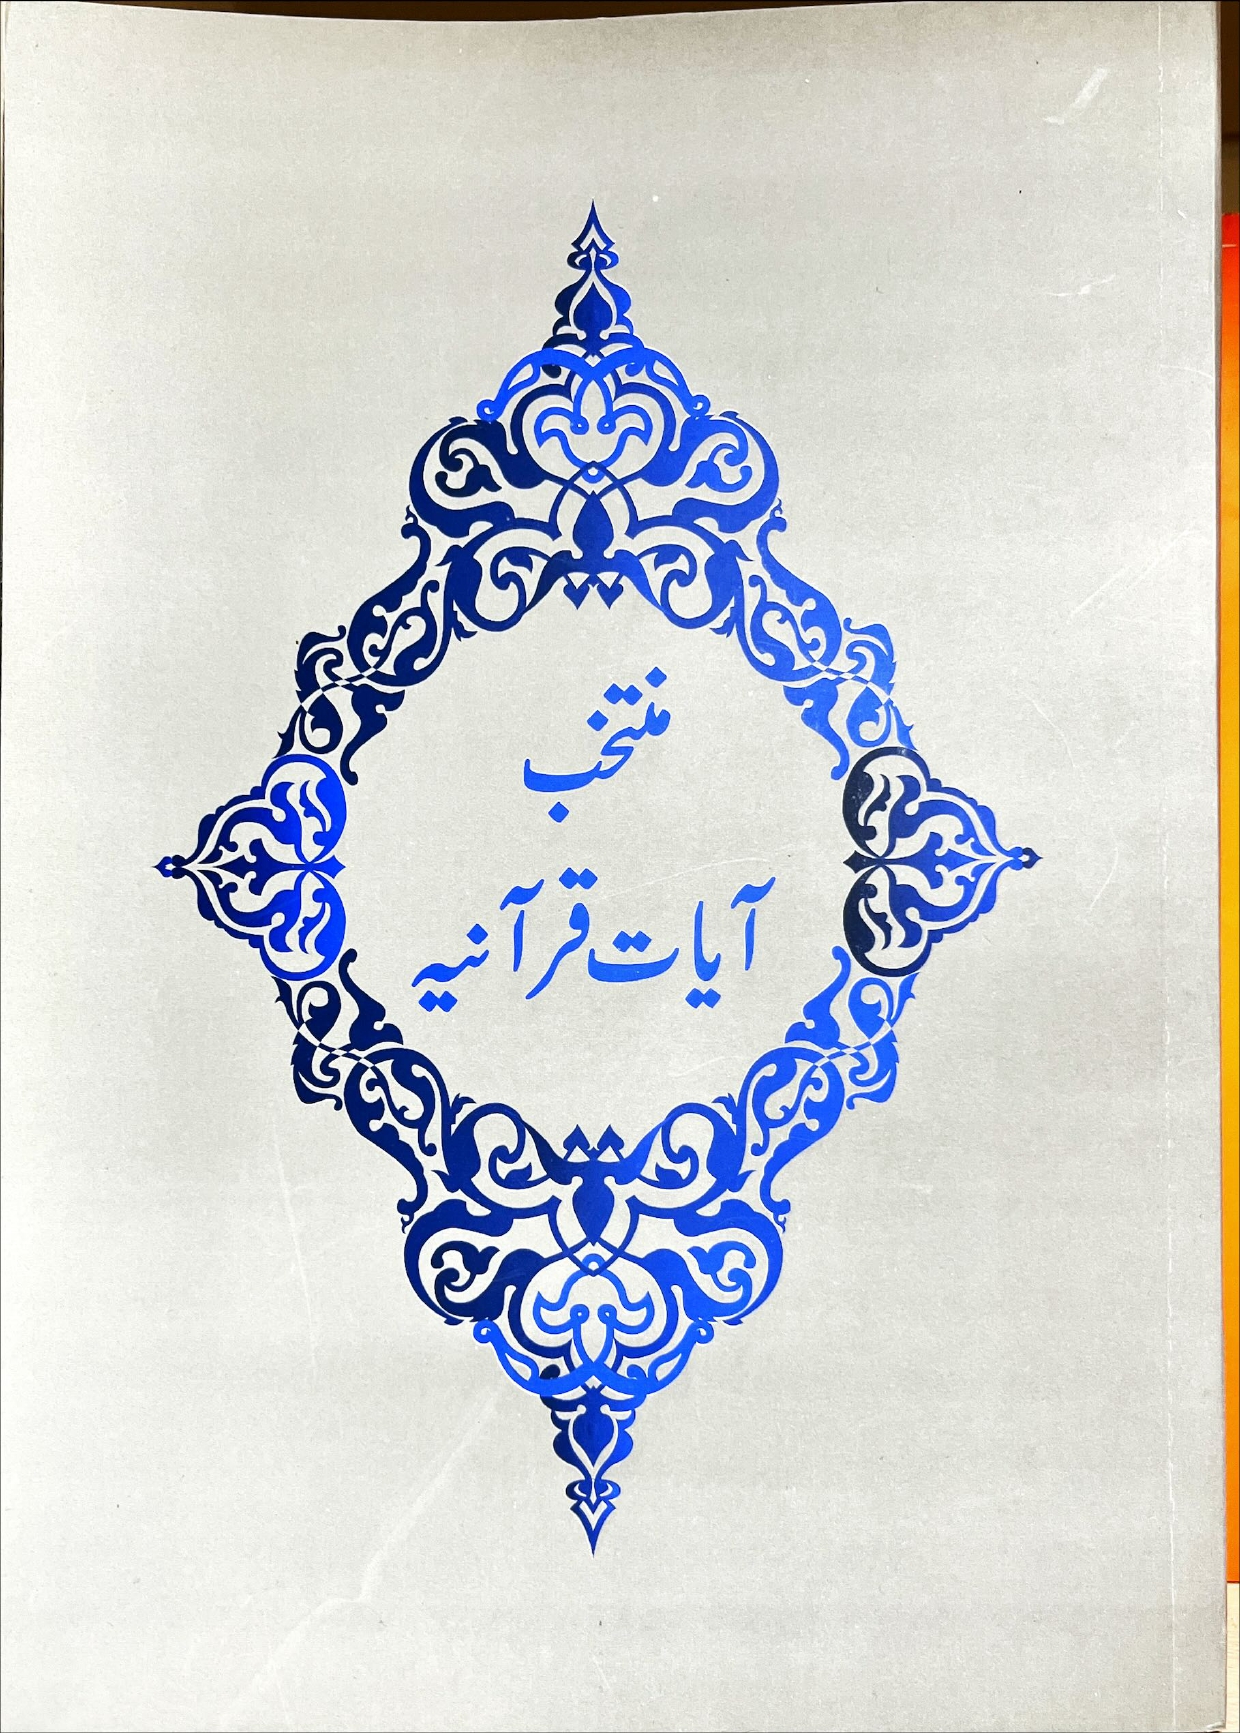 منتخب
آیات قرآنیه